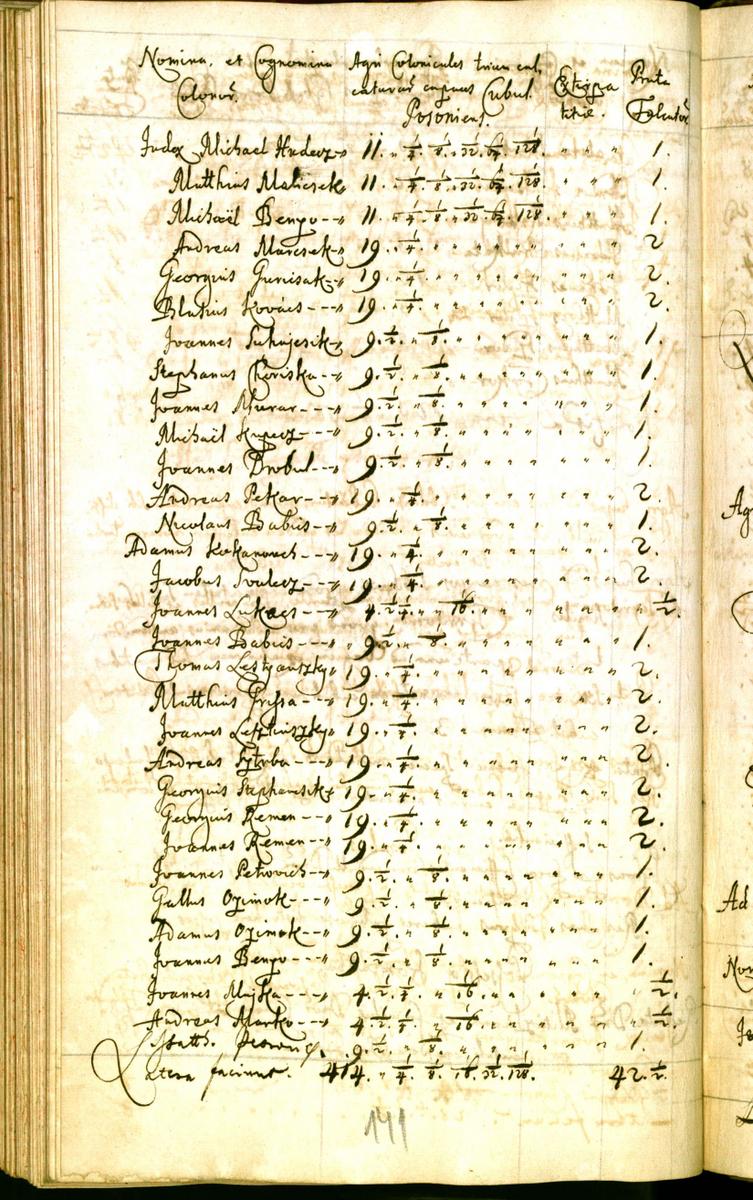 Nomina, et Cognomina Colonor̃. Agri Colonicales trium cal caturar̃ capaces Cubul. Posoniens. Extirpa titiæ. Prata Falcator̃
Judex Michael Hudecz 11. " 1/4. 1/8. " 1/32. 1/64. 1/128. " " " 1.
Matthias Malicsek 11. " 1/4. 1/8. " 1/32. 1/64. 1/128. " " " 1.
Michaël Benyo 11. " 1/4. 1/8. " 1/32. 1/64. 1/128. " " " 1.
Andreas Marcsek 19. " 1/4. " " " " " " " " 2
Georgius Guricsak 19. " 1/4. " " " " " " " " 2.
Blasius Kovács 19. " 1/4. " " " " " " " " 2.
Joannes Suhajcsik 9. 1/2. " 1/8. " " " " " " " 1.
Stephanus Choriska 9. 1/2. " 1/8. " " " " " " " 1.
Joannes Murar 9. 1/2. " 1/8. " " " " " " " 1.
Michaël Kupecz 9. 1/2. " 1/8. " " " " " " " 1.
Joannes Drobul 9. 1/2. " 1/8. " " " " " " " 1.
Andreas Pekar 19. " 1/4. " " " " " " " " 2.
Nicolaus Babics 9. 1/2. " 1/8. " " " " " " " 1.
Adamus 19. " 1/4. " " " " " " " " 2.
Jacobus 19. " 1/4. " " " " " " " " 2.
Joannes Lukacs 4. 1/2. 1/4. " " 1/16. " " " " " " " 1/2.
Joannes Babics 9. 1/2. " 1/8. " " " " " " " 1.
Thomas 19. " 1/4. " " " " " " " " 2.
Matthias 19. " 1/4. " " " " " " " " 2.
Joannes 19. " 1/4. " " " " " " " " 2.
Andreas 19. " 1/4. " " " " " " " " 2
Georgius Stephancsik 19. " 1/4. " " " " " " " " 2.
Georgius Remen 19. " 1/4. " " " " " " " " 2.
Joannes Remen 19. " 1/4. " " " " " " " " 2.
Joannes Petrovich 9. 1/2. " 1/8. " " " " " " " 1.
Gallus 9. 1/2. " 1/8. " " " " " " " 1.
Adamus 9. 1/2. " 1/8. " " " " " " " 1.
Joannes Benyo 9. 1/2. " 1/8. " " " " " " " 1.
Joannes Majka 4. 1/2. 1/4. " 1/16. " " " " " " 1/2.
Andreas Marko 4. 1/2. 1/4. " 1/16. " " " " " " 1/2.
Matth. 9. 1/2. " 1/8. " " " " " " " 1.
Latera faciunt. 414. " 1/4. 1/8. 1/16. 1/32. 1/128. 42. 1/2.
141